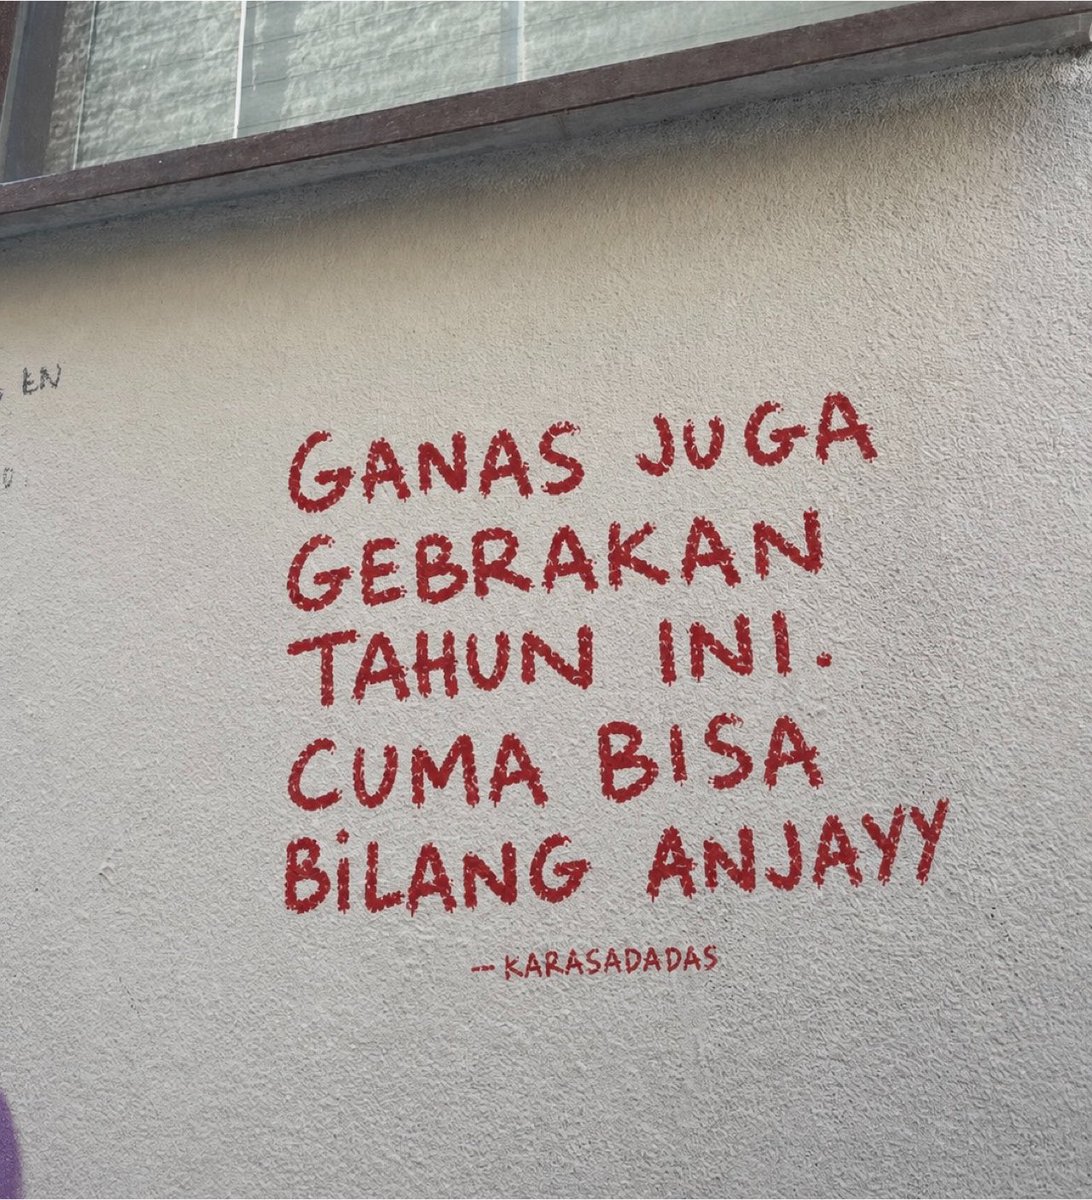 EN
GANAS JUGA
GEBRAKAN
TAHUN INI.
CUMA BISA
BiLANG ANJAYY
-- KARASADADAS